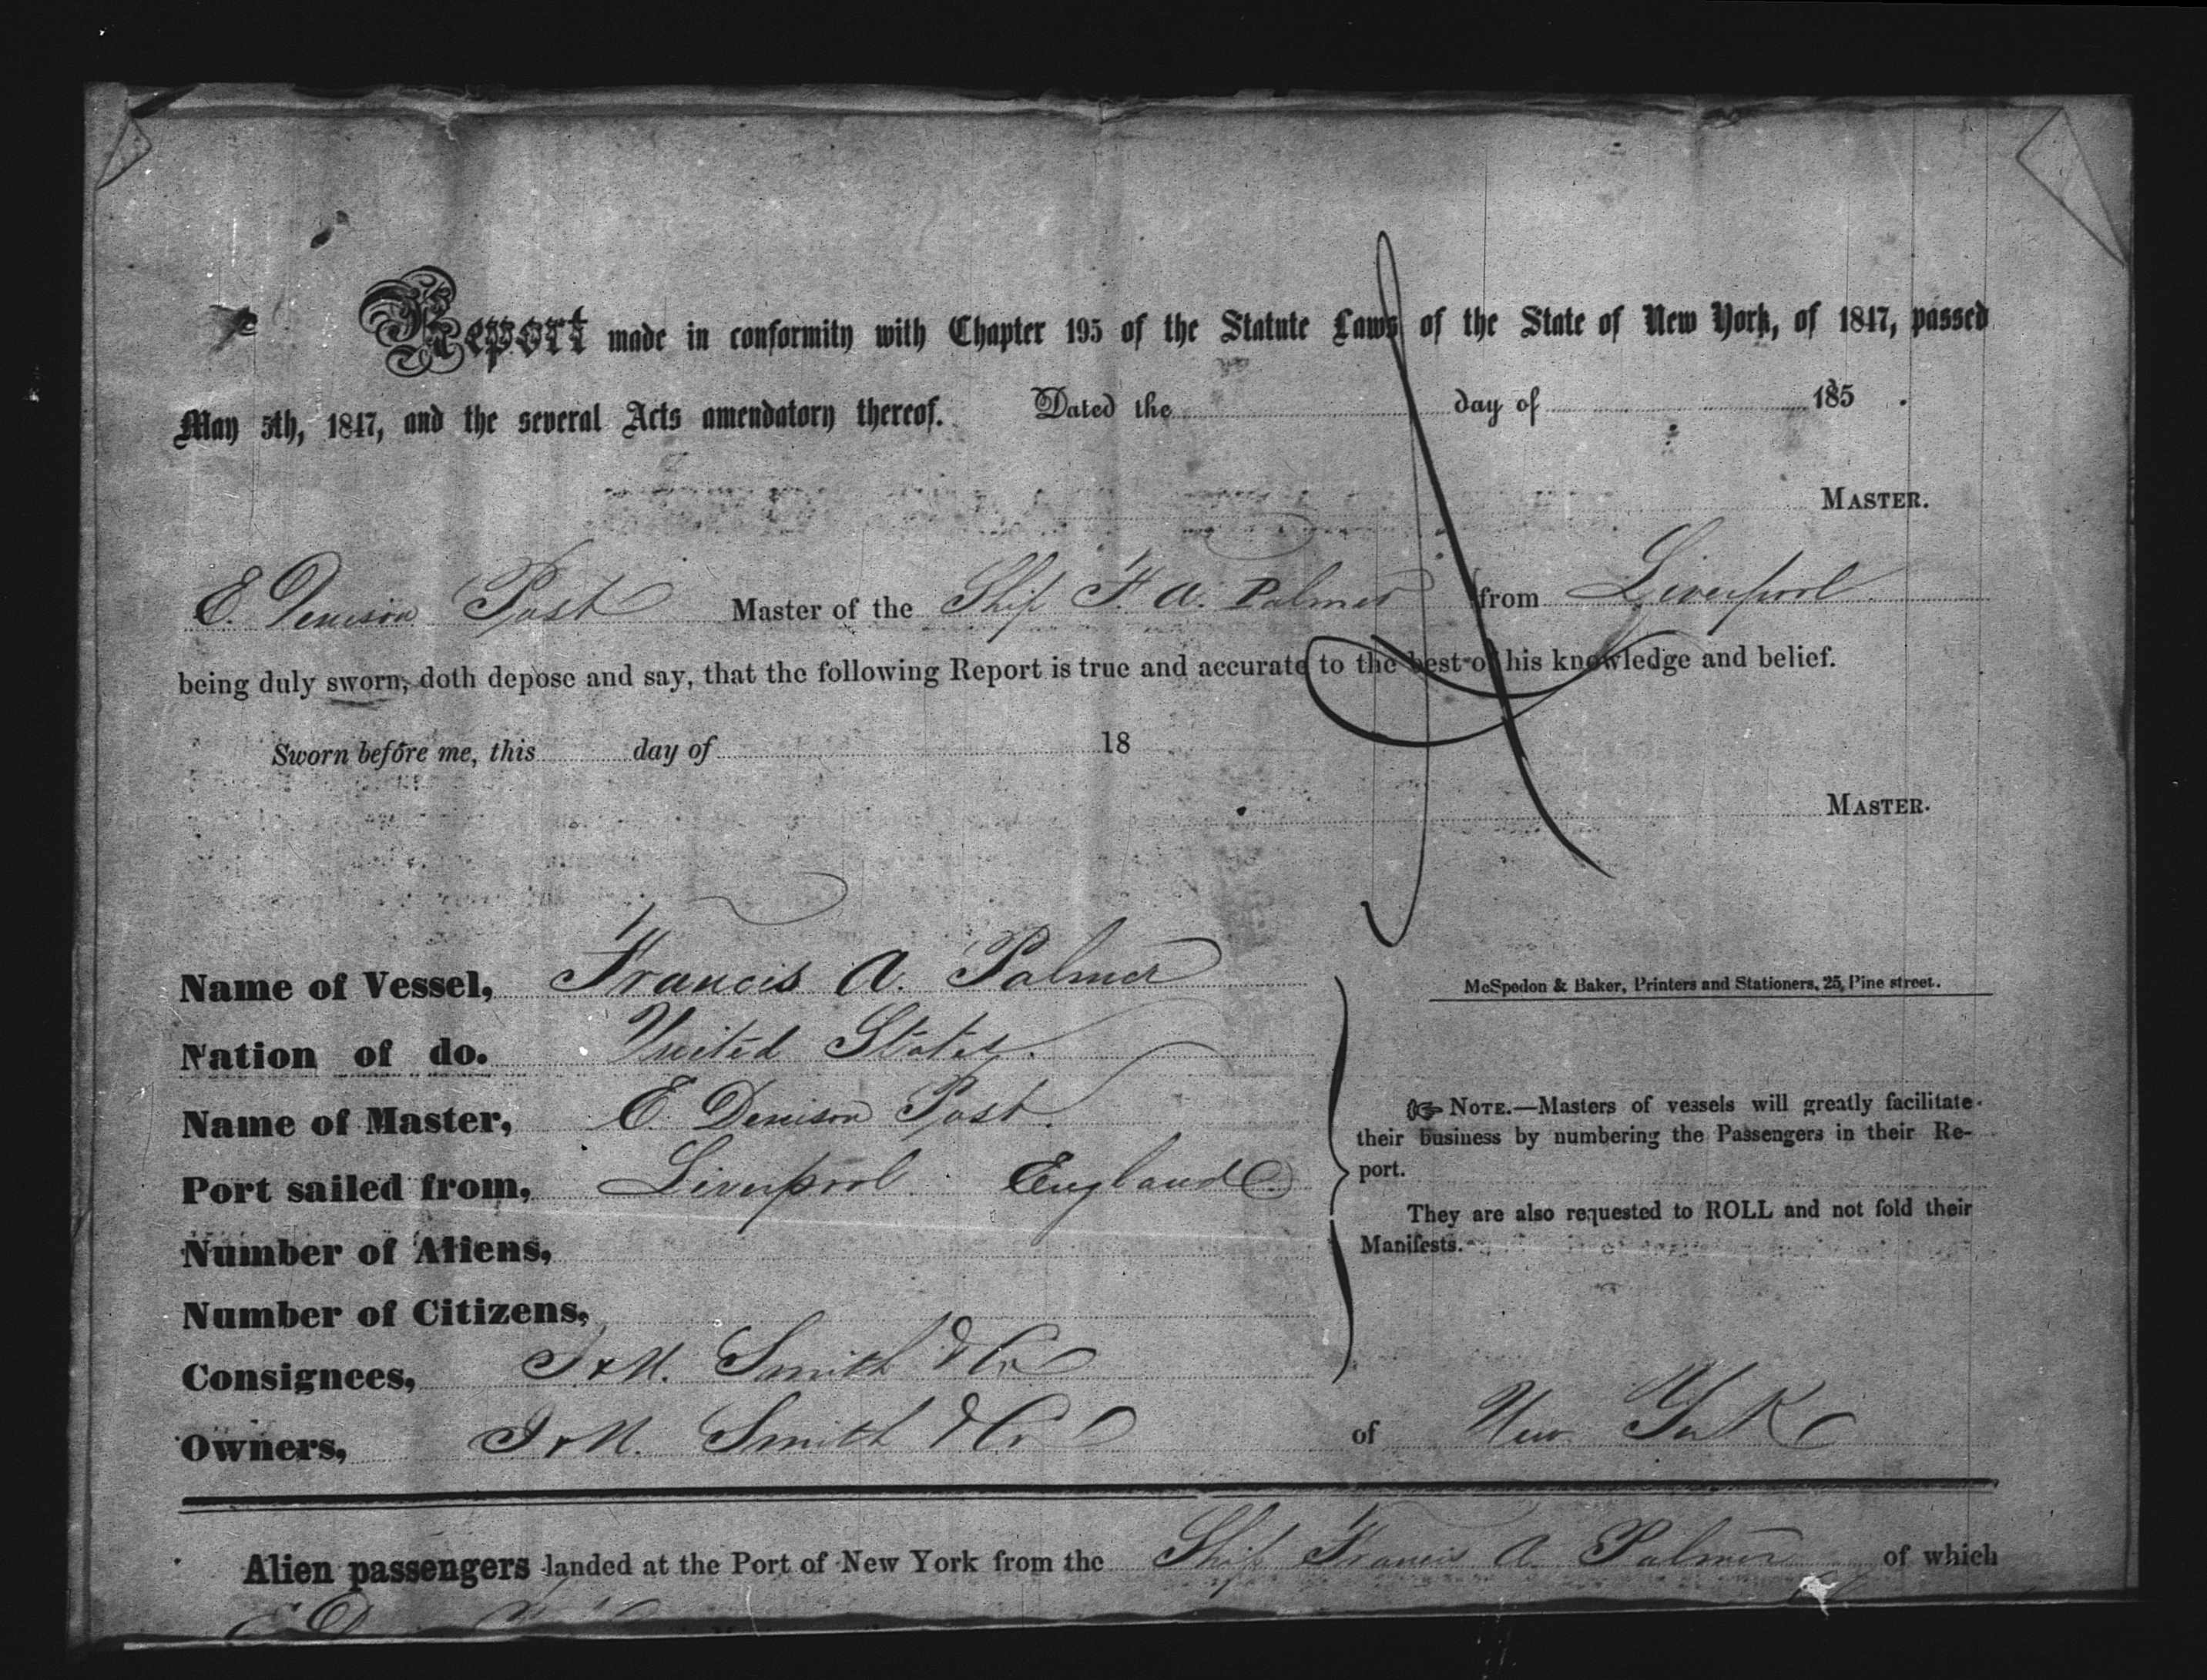 Report made in conformity with Chapter 195 of the Statute Laws of the State of New York, of 1847, passed
May 5th, 1847, and the several Acts amendatory thereof. Dated the day of 185 .
MASTER.
E. Denison Post Master of the Ship F. A. Palmer from Liverpool
being duly sworn, doth depose and say, that the following Report is true and accurate to the best of his knowledge and belief.
Sworn before me, this day of 18
MASTER.
Name of Vessel, Francis A. Palmer
McSpedon & Baker, Printers and Stationers, 25, Pine street.
Nation of do. United States.
Name of Master, E. Denison Post.
Port sailed from, Liverpool England
Number of Aliens,
Number of Citizens,
NOTE.—Masters of vessels will greatly facilitate
their business by numbering the Passengers in their Re-
port.
They are also requested to ROLL and not fold their
Manifests.
Consignees, Smith & Co
Owners, Smith & Co of New York
Alien passengers landed at the Port of New York from the Ship Francis A. Palmer of which